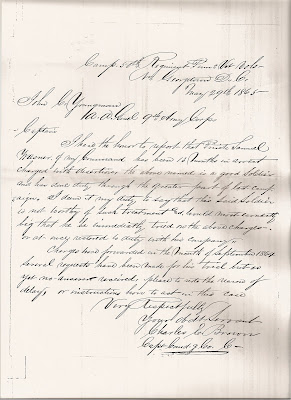 Camp 50th Regiment Penna Vet Vols
Nr Georgetown D.C.
May 29th 1865
John C. Youngman
A.A. Genl 9th Army Corps
Captain
I have the honor to report that Private Samuel
of my Command has been 15 Months in arrest
Charged with desertion. the above named is a good Soldier
and has done duty through the greater part of last cam
paign. I deem it my duty to say that this said Soldier
is not worthy of such treatment and would most earnestly
beg that he be immediately tried on the above charges
or at once restored to duty with his company.
Charges were forwarded in the month of September 1864
several requests have been made for his trial but as
yet no answer received, please to state the reason of
delay, or instructions how to act in this case
Very Respectfully
Your Obdt Servant
Charles E. Brown
Capt Comdg Co. C